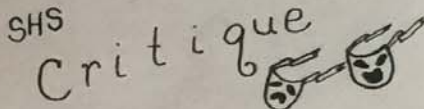 SHS
Critique